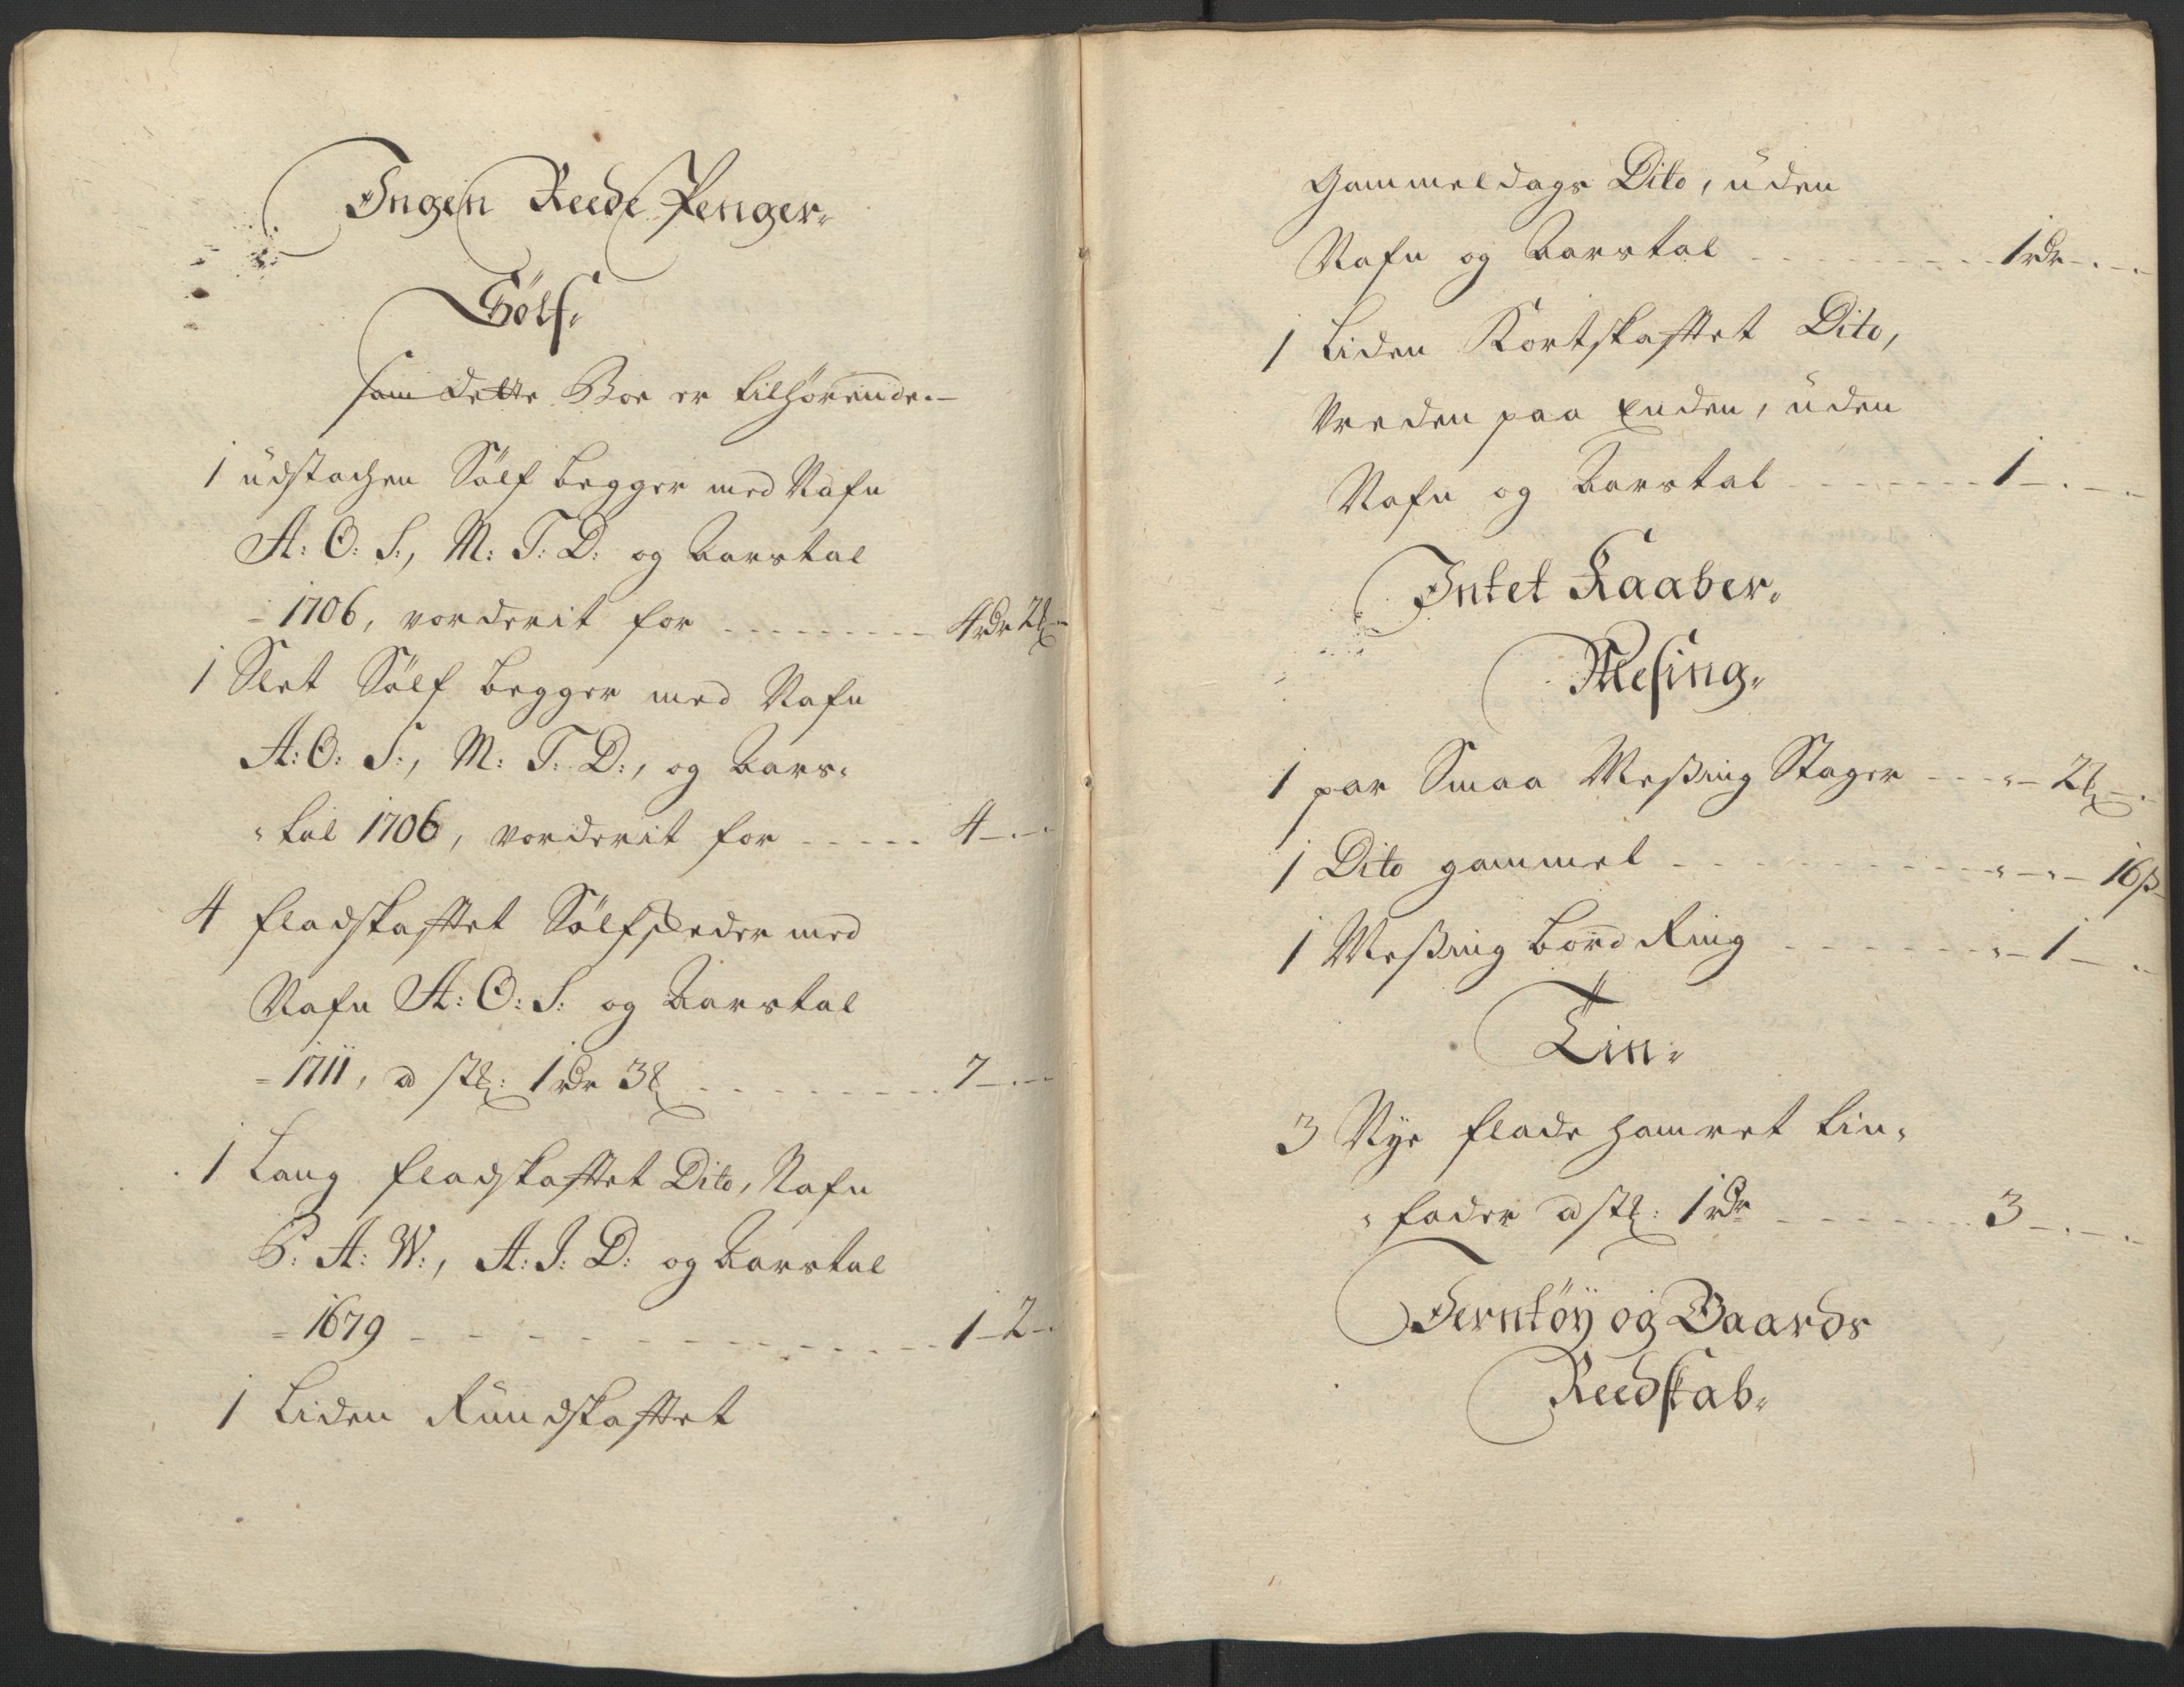 Ingen Reede Penger.
Sölf.
som dette Boe er tilhörende.
1 udstachen Sölf begger med Nafn
A: O: S:, M: T: D: og Aarstal
1706, vorderit for - - - 4 rdr 2 ß
1 Slet Sölf begger med Nafn
A: O: S:, M: T: D:, og Aars-
tal 1706, vorderit for - - - 4 - . -
4 fladskafftet Sölfskeder med
Nafn A: O: S: og Aarstal
1711, a stk: 1 rdr 3 ß - - - 7 - . -
1 Lang fladskafftet Dito, Nafn
P: A: W:, A: I: D: og Aarstal
1679 - - - 1 - 2 -
1 Liden Rundskafftet
Gammeldags Dito, uden
Nafn og Aarstal - - - 1 rdr - . -
1 Liden Kortskafftet Dito,
Vreden paa Enden, uden
Nafn og Aarstal - - - 1 - . -
Intet Kaaber.
Mesing.
1 par Smaa Messing Stager - - - 2 ß - .
1 Dito gammel - - - 16 ß
1 Messing bord Ring - - - 1 - .
Tin.
3 Nye flade hamret tin-
fader a stk: 1 rdr - - - 3 - . -
Jerntöy og Gaards
Reedskab.